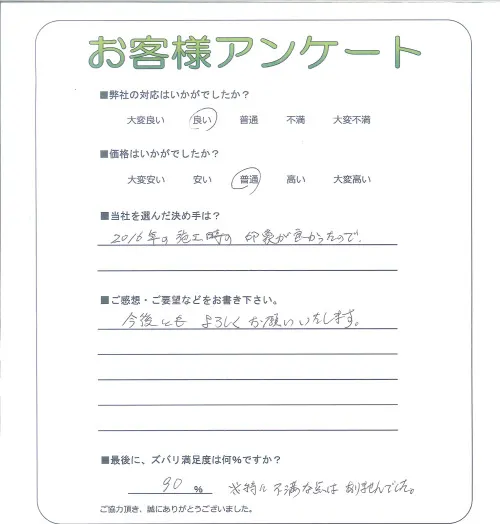 お客様アンケート
■弊社の対応はいかがでしたか？
大変良い 良い 普通 不満 大変不満
■価格はいかがでしたか？
大変安い 安い 普通 高い 大変高い
■当社を選んだ決め手は？
2016年の施工時の印象が良かったので。
■ご感想・ご要望などをお書き下さい。
今後とも よろしくお願いいたします。
■最後に、ズバリ満足度は何％ですか？
90 % ※特に不満な点はありませんでした。
ご協力頂き、誠にありがとうございました。